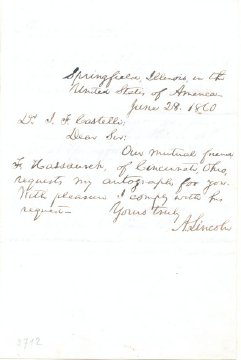 Springfield, Illinois, in the
United States of America
June 28. 1860
Dr. I. F. Castelli:
Dear Sir:
Our mutual friend
F. Hassaurek, of Cincinnati Ohio,
requests my autograph for you.
With pleasure I comply with his
request—
Yours truly
A. Lincoln
3712